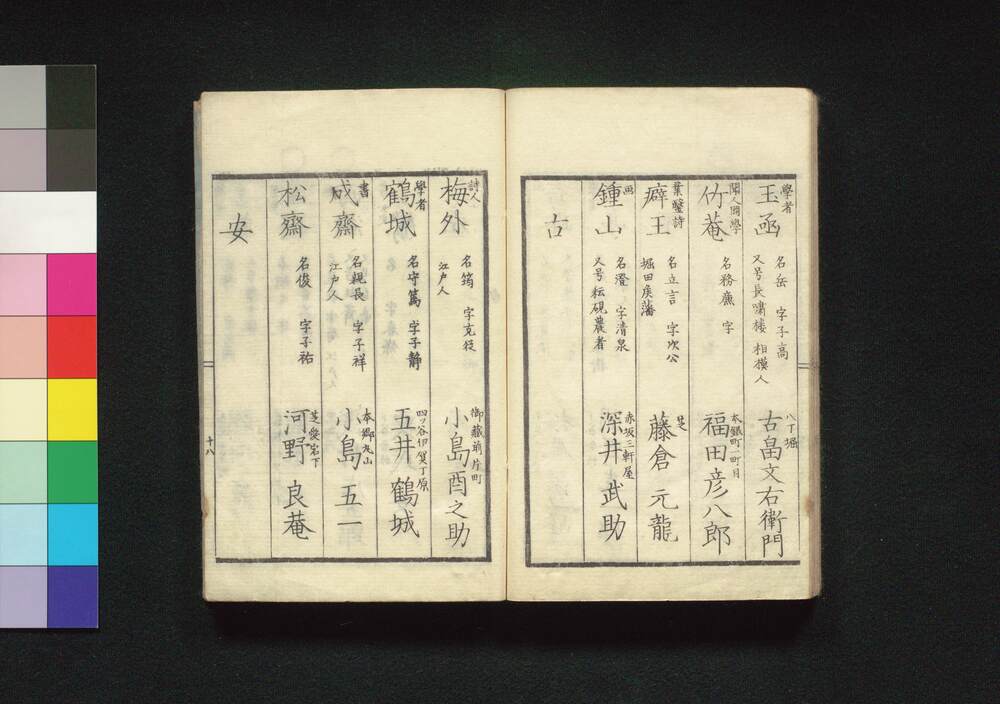 學者
玉函
名岳 字子高
又号長嘯楼 相摸人
八丁堀
古畠文右衛門
聞人 国學
竹菴
名務廉 字
本銀町一町目
福田彦八郎
葉鑒詩
癖王
名立言 字次公
堀田矦藩
芝
藤倉元龍
画
鍾山
名澄 字清泉
又号耘硯農者
赤坂三軒屋
深井武助
古
詩人
梅外
名筠 字克従
江戸人
御藏前片町
小島酉之助
學者
鶴城
名守篤 字子静
四ッ谷伊賀丁原
五井鶴城
書
成齋
名親長 字子祥
江戸人
本郷丸山
小島五一
松齋
名俊 字子祐
芝愛宕下
河野良菴
安
十八